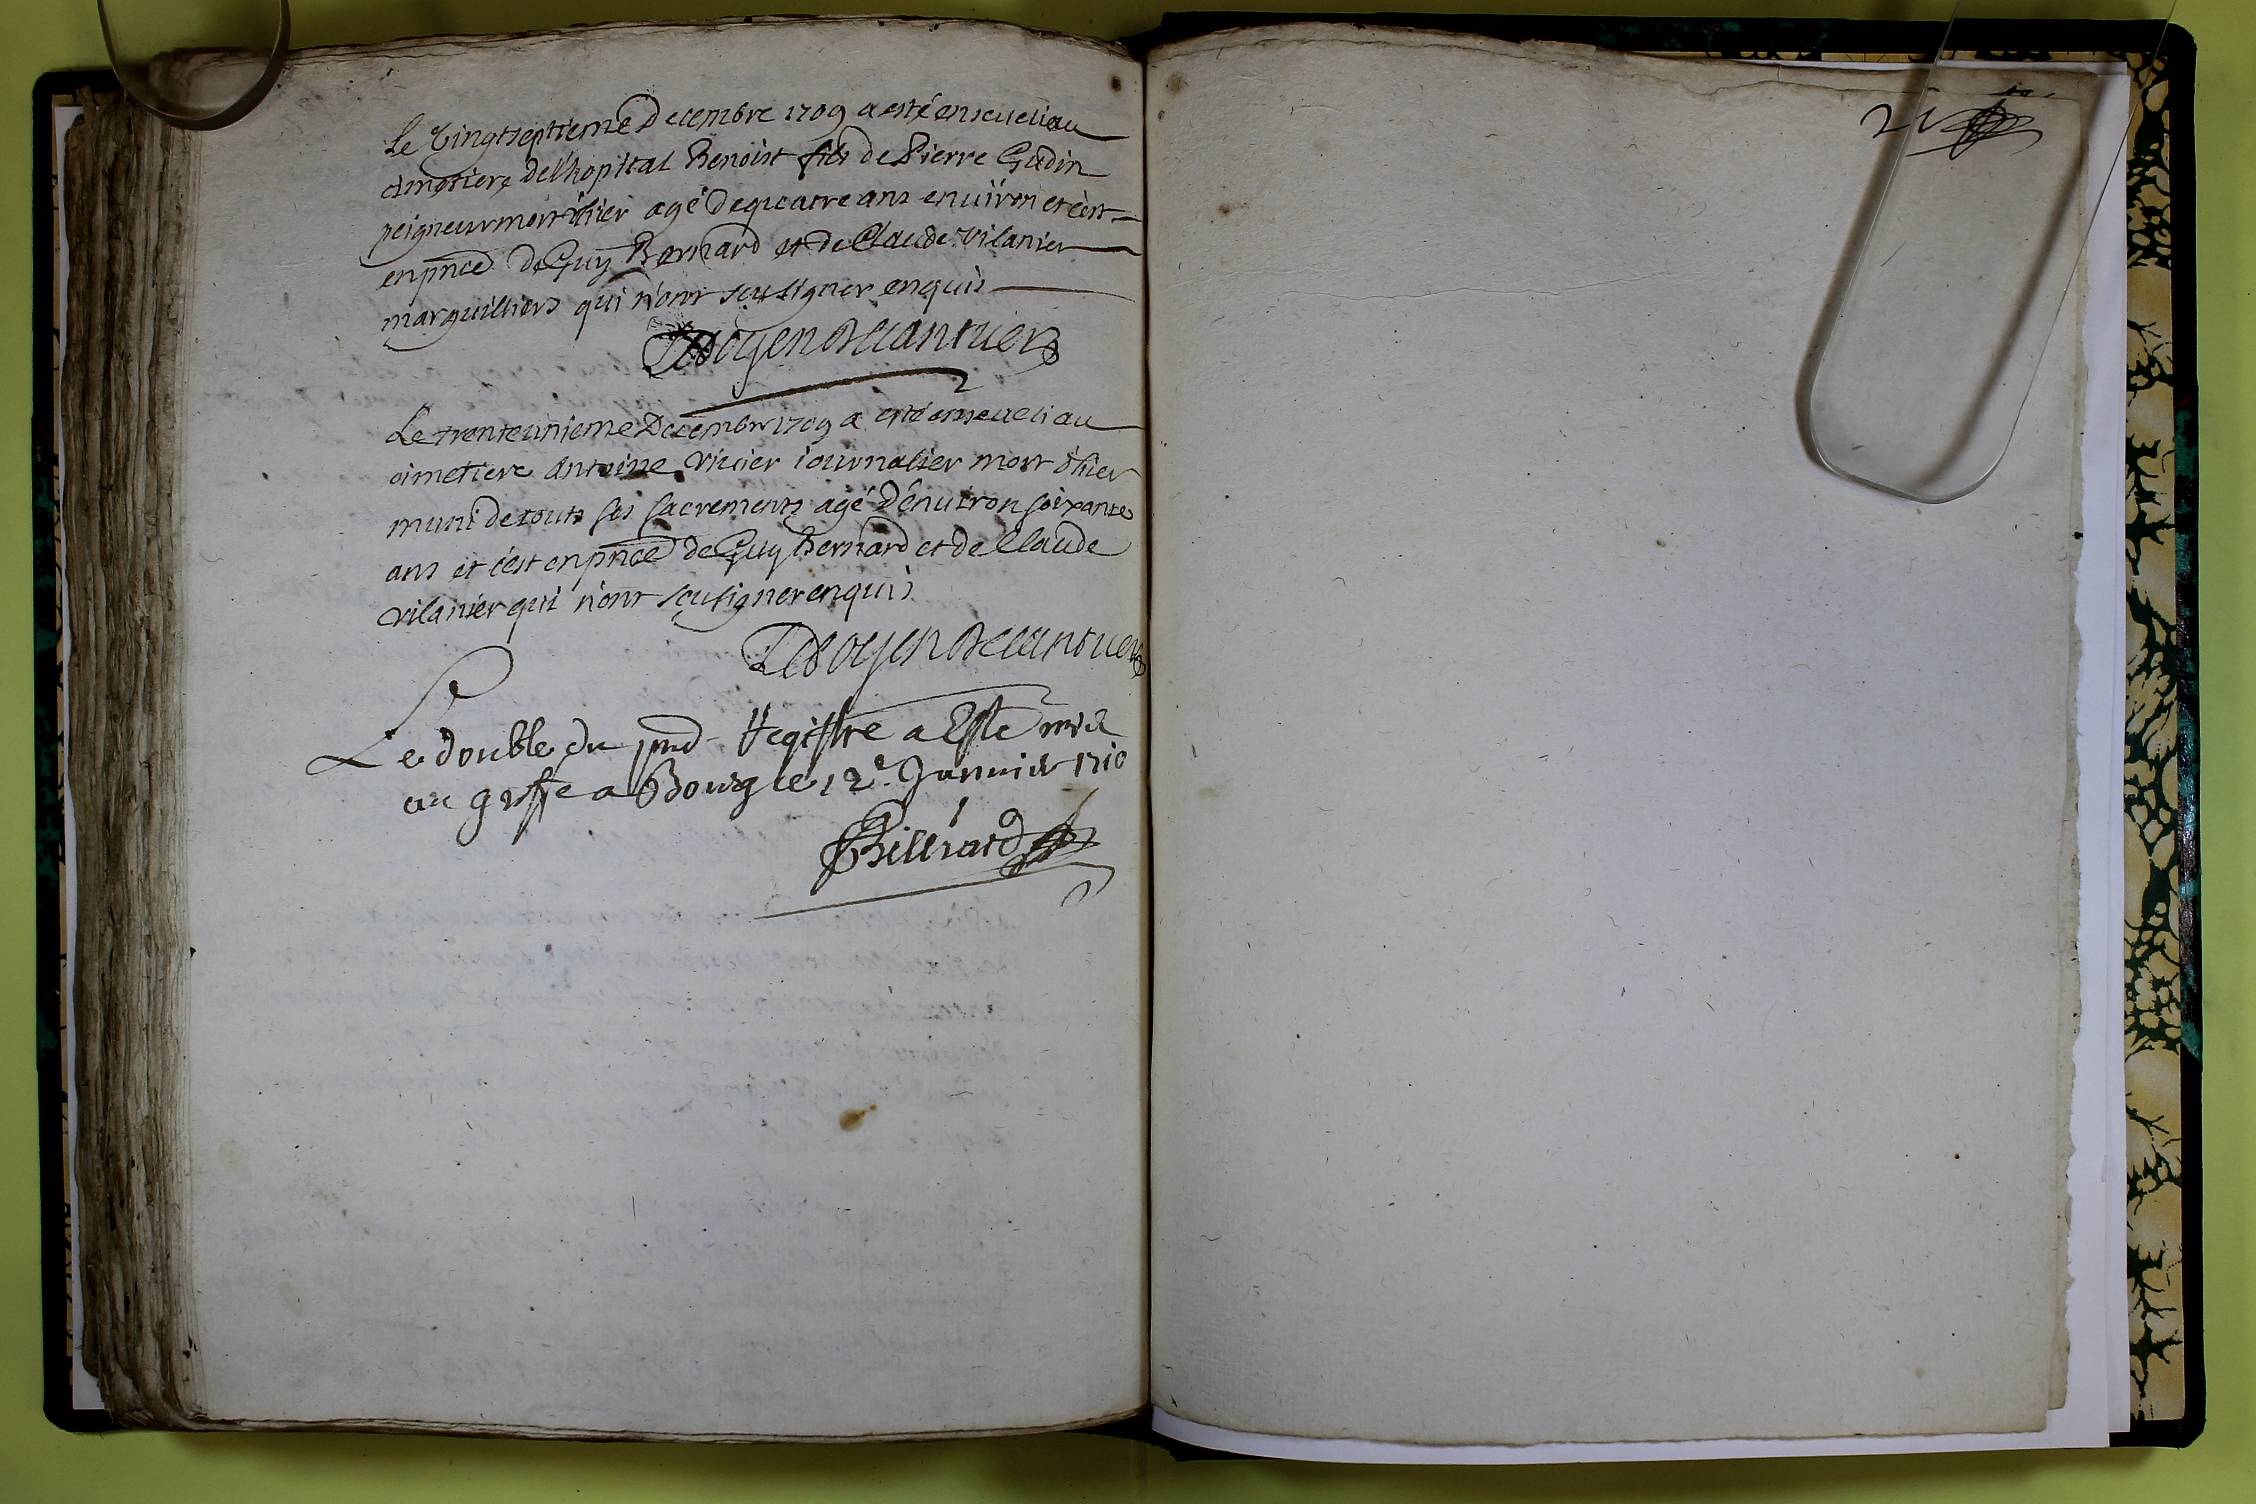 Le vingtseptieme Decembre 1709 a esté enseveli au
cimetiere de l'hopital Benoist fils de Pierre Gudin
peigneur mort ihier agé de quatre ans enuiron et c'est
en pnce de Guy Bernard et de Claude Vilanier
marguilliers qui n'ont sçu signer enquis
Le trenteunieme Decembre 1709 a esté enseveli au
cimetiere Antoine journalier mort d'hier
muni de touts ses sacrements agé d'enuiron soixante
ans et c'est en pnce de Guy Bernard et de Claude
Vilanier qui n'ont sçu signer enquis
Le double du pnt Registre a Esté mis
au greffe a Bourg le 12e Januier 1710
Billiard
21